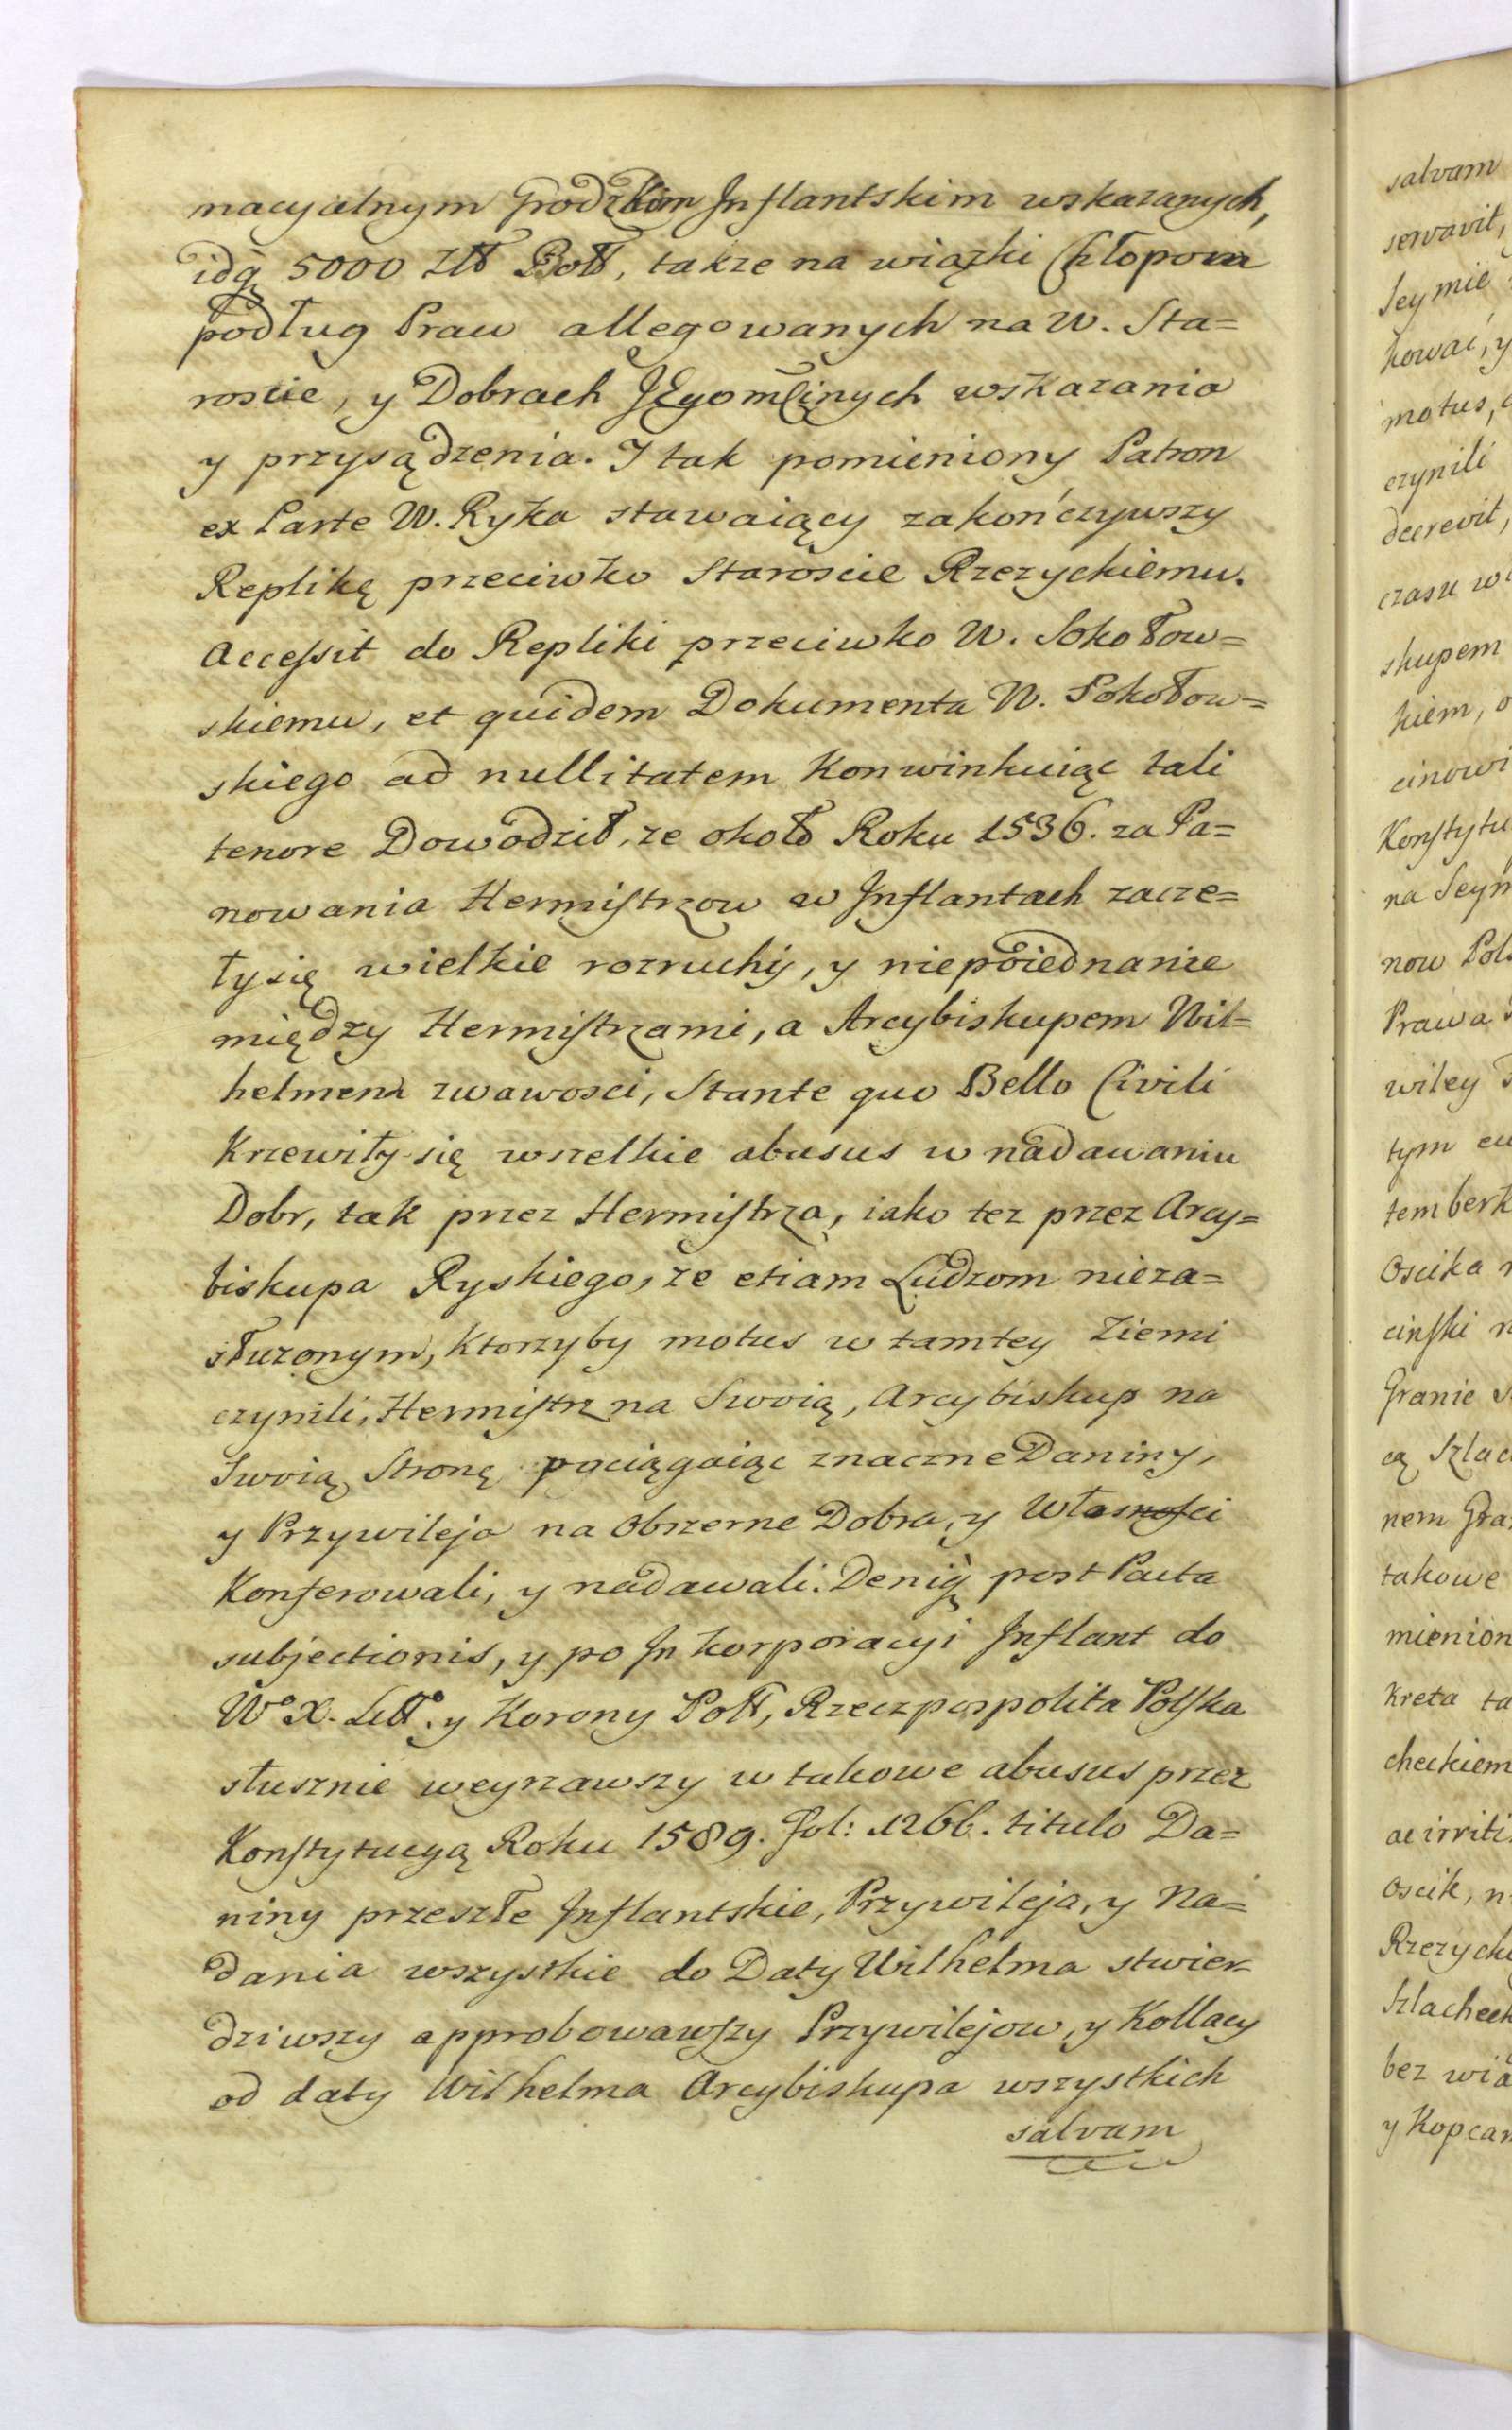 macyalnym Grodzkim Inflantskim wskazanych,
idq́ 5000 Złł Poll, takze na wiązki Chłopom
podług Praw allegowanych na W. Sta=
roscie, y Dobrach JEgomścinych wskazania
y przysądzenia. I tak pomieniony Patron
ex Parte W. Ryka stawaiący zakończywszy
Replikę przeciwko Staroscie Rzezyckiemu.
Accessit do Repliki przeciwko W. Sokołow=
skiemu, et quidem Dokumenta W. Sokołow=
skiego ad nullitatem Konwinkuiąc tali
tenore Dowodził, ze około Roku 1536. za Pa=
nowania Hermistrzow w Inflantach zacze=
ły się wielkie rozruchy, y niepoiednanie
między Hermistrzami, a Arcybiskupem Wil=
helmem zwawosci, Stante quo Bello Civili
Krzewiły się wszelkie abusus w nadawaniu
Dobr, tak przez Hermistrza, iako tez przez Arcy=
biskupa Ryskiego, ze etiam Ludzom nieza=
słuzonym, Ktorzyby motus w tamtey Ziemi
czynili, Hermistrz na Swoią, Arcybiskup na
Swoią Stronę pociągaiąc znaczne Daniny,
y Przywileja na Obszerne Dobra, y Własnosci
Konferowali, y nadawali. Deniq́ post Pacta
subjectionis, y po Inkorporacyi Inflant do
Wo X. Litt. y Korony Poll, Rzeczpospolita Polska
słusznie weyrzawszy w takowe abusus przez
Konstytucyą Roku 1589. Fol: 1266. titulo Da=
niny przeszłe Inflantskie, Przywileja, y Na=
dania wszystkie do Daty Wilhelma stwier-
dziwszy approbowawszy Przywilejow, y Kollacy
od daty Wilhelma Arcybiskupa wszystkich
salvam
salvam
servavit,
Seymie
kować, y
motus,
czynili
decrevit,
czasu
skupem
kiem,
cinowi
Konstytu
na Seym
now Pol
Prawa
wiley
tym
temberk
Oscika
cinski
Granie
cą Szlac
nem Gra
takowe
mienion
kreta ta
checkiem
ac irriti
Oscik,
Rzezyck
Szlacheck
bez wia
y Kopcam